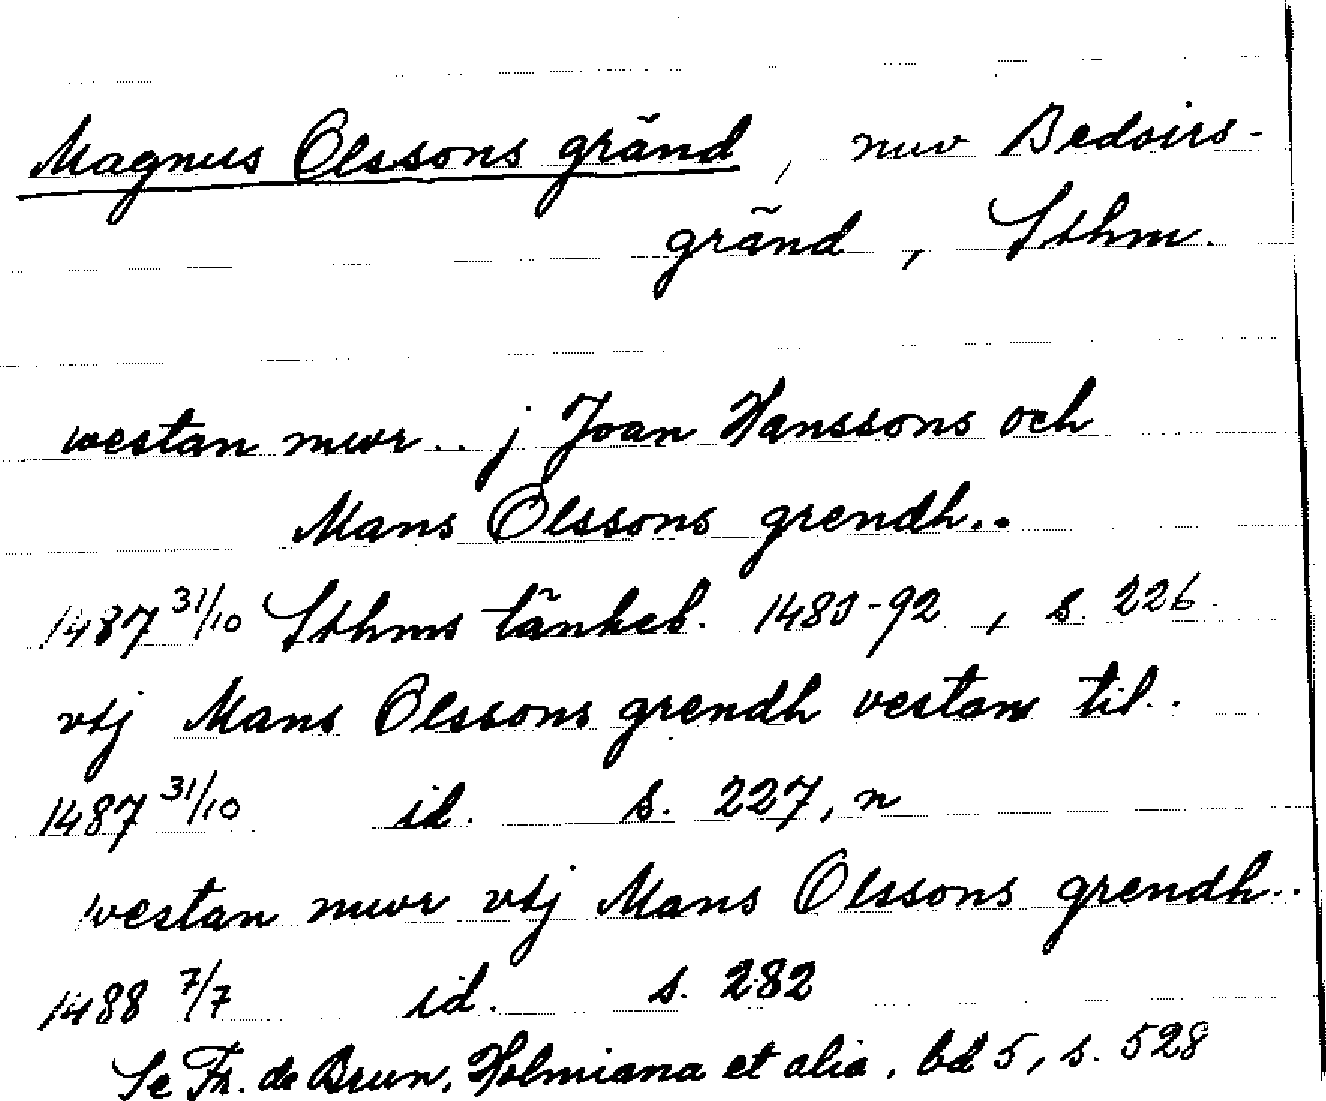 Magnus Olssons gränd, nuv Bedoirs-
gränd, Sthm.
westan mwr.. j Joan Hanssons och
Mans Olssons grendh..
1487 31/10 Sthms tänkeb. 1483-92, s. 226.
vtj Mans Olssons grendh vestan til..
1487 31/10 id. s. 227, n
westan mwr vtj Mans Olssons grendh..
1488 7/7 id. s. 282
Se Fr. de Brun, Holmiana et alia, bd 5, s. 528